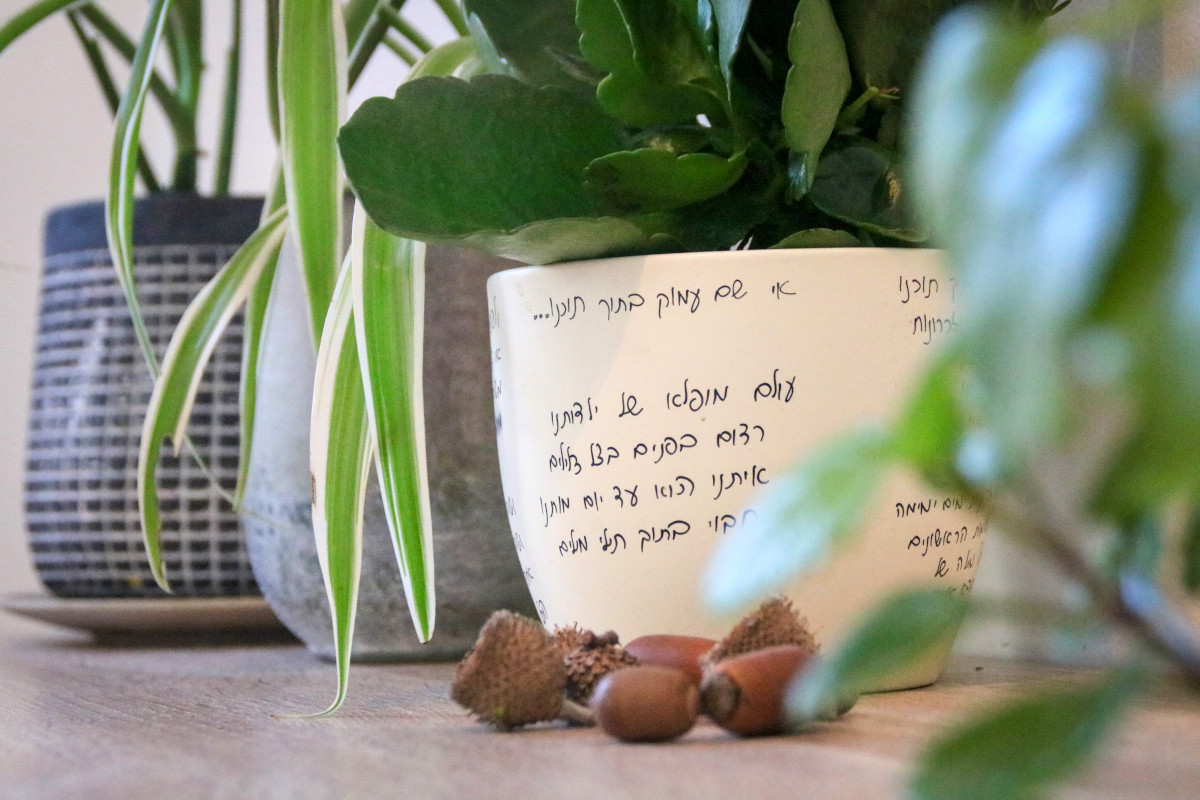 אי שם עמוק בתוך תוכנו...
עולם מופלא של ילדותנו
רדום בפנים בצל צלילים
איתנו הוא עד יום מותנו
חבוי בתוך תילי מילים
תוכנו
זכרונות
ימים ימימה
הראשונים
של